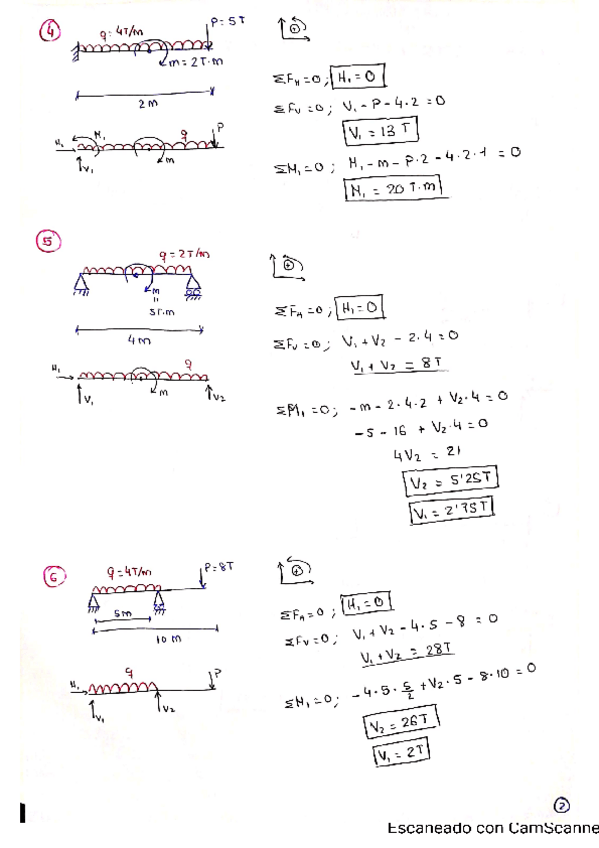 4
q=4T/m
P=5T
m=2T·m
2m
H₁ M₁ V₁ m q P
ΣF_H=0; H₁=0
ΣF_V=0; V₁-P-4·2=0
V₁=13T
ΣM₁=0; M₁-m-P·2-4·2·1=0
M₁=20T·m
5
q=2T/m
m
=
5T·m
4m
H₁ V₁ m q V₂
ΣF_H=0; H₁=0
ΣF_V=0; V₁+V₂-2·4=0
V₁+V₂=8T
ΣM₁=0; -m-2·4·2+V₂·4=0
-5-16+V₂·4=0
4V₂=21
V₂=5'25T
V₁=2'75T
6
q=4T/m
P=8T
5m
10m
H₁ V₁ q V₂ P
ΣF_H=0; H₁=0
ΣF_V=0; V₁+V₂-4·5-8=0
V₁+V₂=28T
ΣM₁=0; -4·5·5/2+V₂·5-8·10=0
V₂=26T
V₁=2T
2
Escaneado con CamScanne